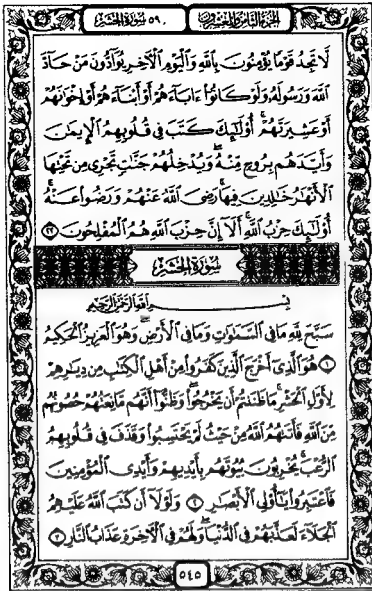 ٥٩ سورة الحشر الجزء الثامن والعشرون
لَّا تَجِدُ قَوْمًا يُؤْمِنُونَ بِٱللَّهِ وَٱلْيَوْمِ ٱلْأَخِرِ يُوَآدُّونَ مَنْ حَآدَّ
ٱللَّهَ وَرَسُولَهُۥ وَلَوْ كَانُوٓا۟ ءَابَآءَهُمْ أَوْ أَبْنَآءَهُمْ أَوْ إِخْوَٰنَهُمْ
أَوْ عَشِيرَتَهُمْ ۚ أُو۟لَٰٓئِكَ كَتَبَ فِى قُلُوبِهِمُ ٱلْإِيمَٰنَ
وَأَيَّدَهُم بِرُوحٍ مِّنْهُ ۖ وَيُدْخِلُهُمْ جَنَّٰتٍ تَجْرِى مِن تَحْتِهَا
ٱلْأَنْهَٰرُ خَٰلِدِينَ فِيهَا ۚ رَضِىَ ٱللَّهُ عَنْهُمْ وَرَضُوا۟ عَنْهُ ۚ
أُو۟لَٰٓئِكَ حِزْبُ ٱللَّهِ ۚ أَلَآ إِنَّ حِزْبَ ٱللَّهِ هُمُ ٱلْمُفْلِحُونَ ٢٢
سُورَةُ الحَشْرِ
بِسْمِ ٱللَّهِ ٱلرَّحْمَٰنِ ٱلرَّحِيمِ
سَبَّحَ لِلَّهِ مَا فِى ٱلسَّمَٰوَٰتِ وَمَا فِى ٱلْأَرْضِ ۖ وَهُوَ ٱلْعَزِيزُ ٱلْحَكِيمُ
١ هُوَ ٱلَّذِىٓ أَخْرَجَ ٱلَّذِينَ كَفَرُوا۟ مِنْ أَهْلِ ٱلْكِتَٰبِ مِن دِيَٰرِهِمْ
لِأَوَّلِ ٱلْحَشْرِ ۚ مَا ظَنَنتُمْ أَن يَخْرُجُوا۟ ۖ وَظَنُّوٓا۟ أَنَّهُم مَّانِعَتُهُمْ حُصُونُهُم
مِّنَ ٱللَّهِ فَأَتَىٰهُمُ ٱللَّهُ مِنْ حَيْثُ لَمْ يَحْتَسِبُوا۟ ۖ وَقَذَفَ فِى قُلُوبِهِمُ
ٱلرُّعْبَ ۚ يُخْرِبُونَ بُيُوتَهُم بِأَيْدِيهِمْ وَأَيْدِى ٱلْمُؤْمِنِينَ
فَٱعْتَبِرُوا۟ يَٰٓأُو۟لِى ٱلْأَبْصَٰرِ ٢ وَلَوْلَآ أَن كَتَبَ ٱللَّهُ عَلَيْهِمُ
ٱلْجَلَآءَ لَعَذَّبَهُمْ فِى ٱلدُّنْيَا ۖ وَلَهُمْ فِى ٱلْأَخِرَةِ عَذَابُ ٱلنَّارِ ٣
٥٤٥